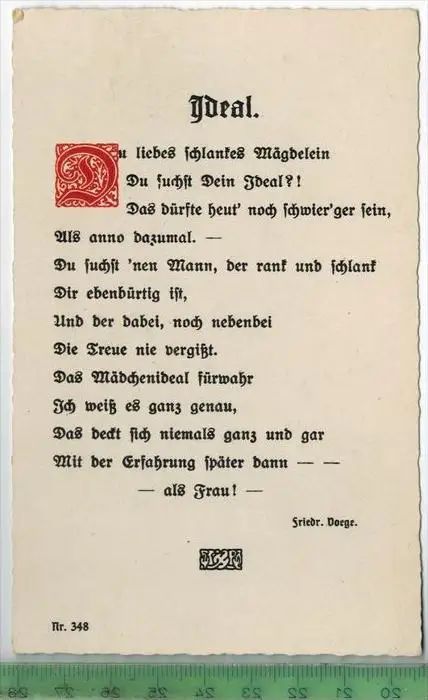 Ideal.
Du liebes schlankes Mägdelein
Du suchst Dein Ideal?!
Das dürfte heut' noch schwier'ger sein,
Als anno dazumal. —
Du suchst 'nen Mann, der rank und schlank
Dir ebenbürtig ist,
Und der dabei, noch nebenbei
Die Treue nie vergißt.
Das Mädchenideal fürwahr
Ich weiß es ganz genau,
Das deckt sich niemals ganz und gar
Mit der Erfahrung später dann — —
— als Frau! —
Friedr. Voege.
Nr. 348
28 27 26 25 24 23 22 21 20